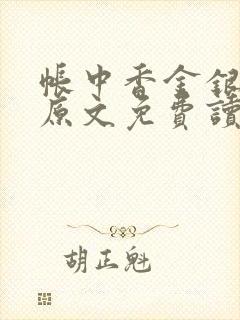 帳中香金銀
原文免費讀
胡正魁